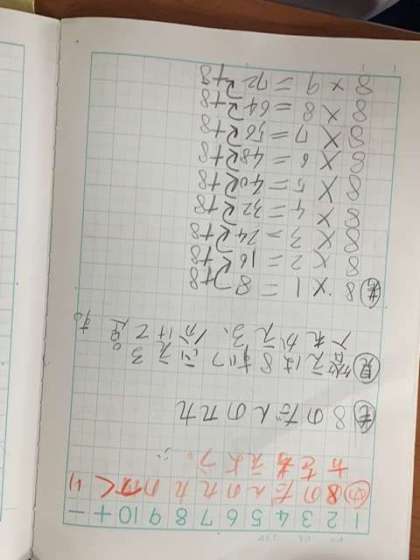 1 2 3 4 5 6 7 8 9 10 + −
め 8のだんの九九のつくり
方を考えよう。
8のだんの九九
見 答えは8ずつふえる
入れかえる、分けて
8×1=8 +8
8×2=16 +8
8×3=24 +8
8×4=32 +8
8×5=40 +8
8×6=48 +8
8×7=56 +8
8×8=64 +8
8×9=72 +8